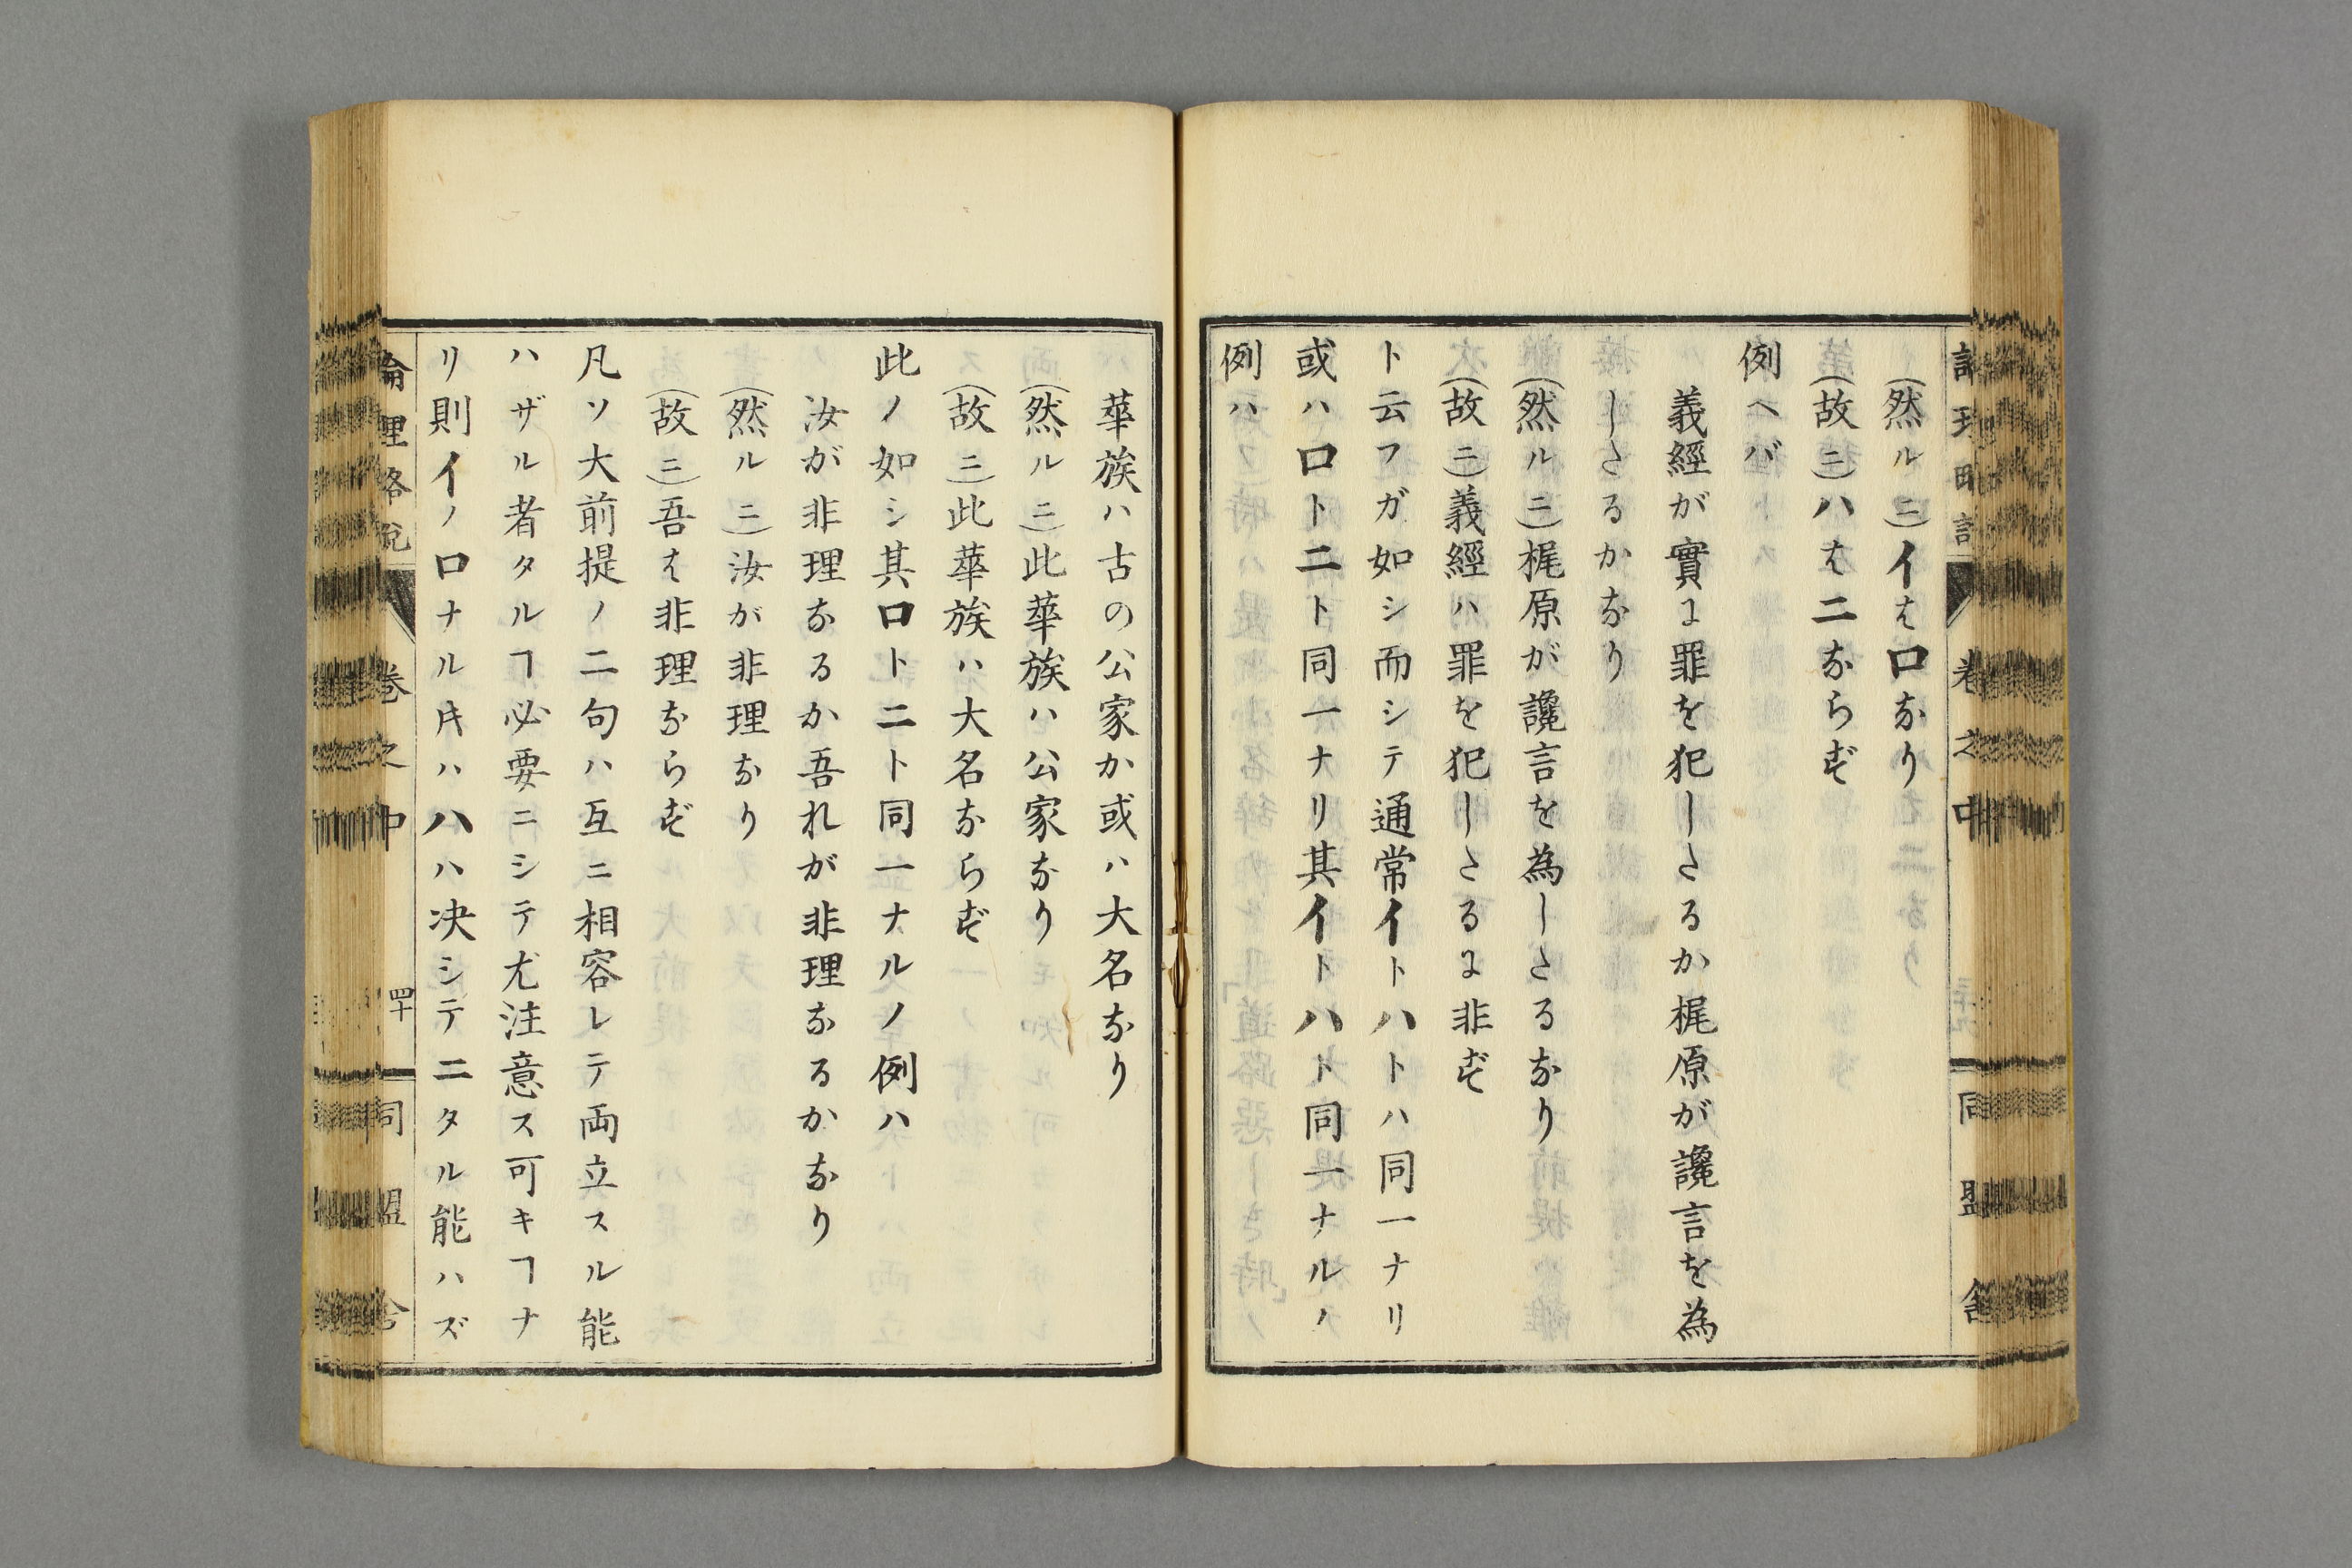 (然ルニ)イはロなり
(故ニ)ハは二ならず
例ヘバ
義經が實に罪を犯したるか梶原が讒言を為
したるかなり
(然ルニ)梶原が讒言を為したるなり
(故ニ)義經ハ罪を犯したるに非ず
ト云フガ如シ而シテ通常イトハトハ同一ナリ
或ハロト二ト同一ナリ其イトハト同一ナルノ
例ハ
華族ハ古の公家か或ハ大名なり
(然ルニ)此華族ハ公家なり
(故ニ)此華族ハ大名ならず
此ノ如シ其ロト二ト同一ナルノ例ハ
汝が非理なるか吾れが非理なるかなり
(然ルニ)汝が非理なり
(故ニ)吾は非理ならず
凡ソ大前提ノ二句ハ互ニ相容レテ両立スル能
ハザル者タルヿ必要ニシテ尤注意ス可キヿナ
リ則イノロナル𪜈ハハハ决シテ二タル能ハズ
論理略説 卷之中 四十 同盟舎